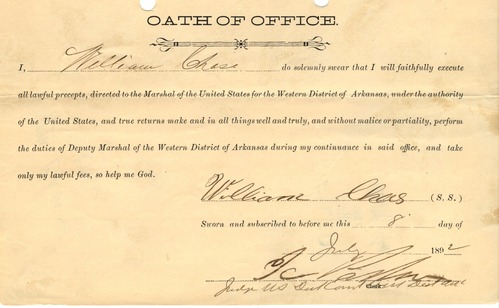 OATH OF OFFICE.
I, William Chase do solemnly swear that I will faithfully execute
all lawful precepts, directed to the Marshal of the United States for the Western District of Arkansas, under the authority
of the United States, and true returns make and in all things well and truly, and without malice or partiality, perform
the duties of Deputy Marshal of the Western District of Arkansas during my continuance in said office, and take
only my lawful fees, so help me God.
William Chase (S. S.)
Sworn and subscribed to before me this 8 day of
July 1892
Judge US